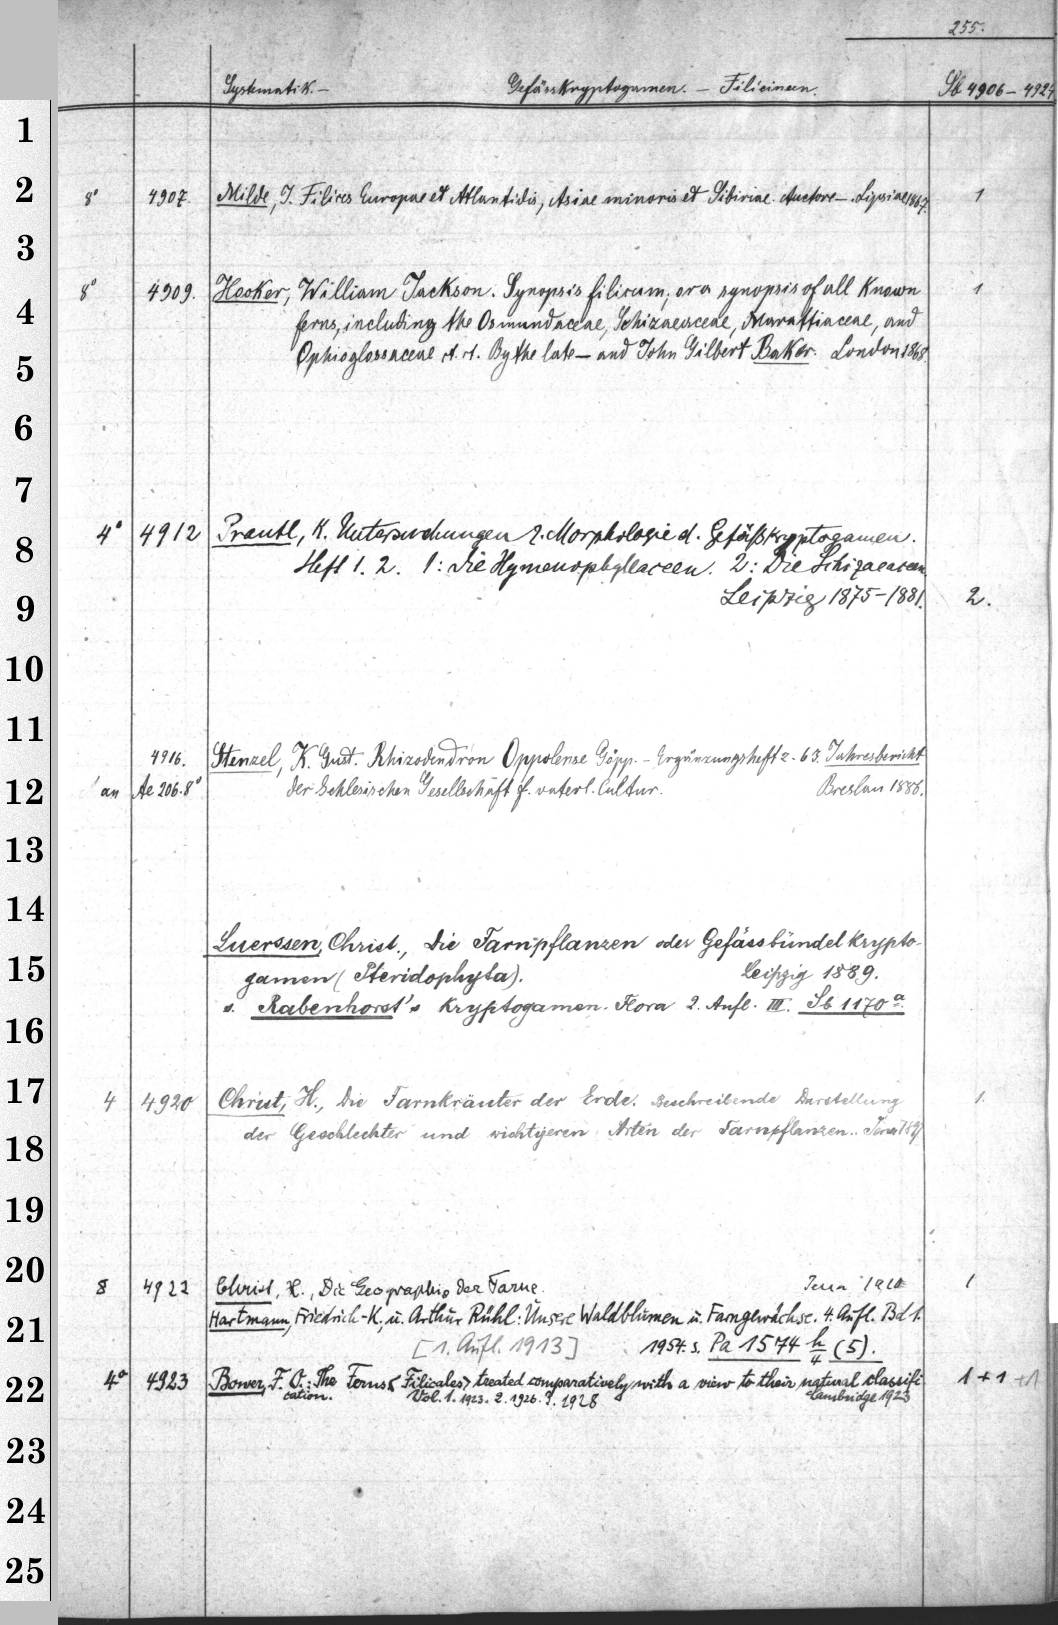 255.
Systematik. — Gefässkryptogamen. — Filicineen. Sb 4906 – 4924
1
2
8° 4907. Milde, J. Filices Europae et Atlantidis, Asiae minoris et Sibiriae. Auctore —. Lipsiae 1867. 1
3
8° 4909. Hooker, William Jackson. Synopsis filicum; or a synopsis of all Known 1
4
ferns, including the Osmundaceae, Schizaeaceae, Marattiaceae, and
5
Ophioglossaceae etc. etc. By the late — and John Gilbert Baker. London 1868.
6
7
4° 4912 Prantl, K. Untersuchungen z. Morphologie d. Gefäßkryptogamen.
8
Heft 1. 2. 1: Die Hymenophyllaceen. 2: Die Schizaeaceen.
9
Leipzig 1875–1881. 2.
10
11
4916. Stenzel, K. Gust. Rhizodendron Oppolense Göpp. – Ergänzungsheft z. 63. Jahresbericht
12
an Ae 206. 8° der Schlesischen Gesellschaft f. vaterl. Cultur. Breslau 1886.
13
14
Luerssen, Christ., Die Farnpflanzen oder Gefässbündelkrypto-
15
gamen (Pteridophyta). Leipzig 1889.
s. Rabenhorst's Kryptogamen-Flora 2. Aufl. III. Sb 1170 a.
16
17
4 4920 Christ, H., Die Farnkräuter der Erde. Beschreibende Darstellung 1.
18
der Geschlechter und wichtigeren Arten der Farnpflanzen.. Jena 1897
19
20
8 4922 Christ, H., Die Geographie der Farne. Jena 1910 1
21
Hartmann, Friedrich-K. u. Arthur Rühl: Unsere Waldblumen u. Farngewächse. 4. Aufl. Bd 1.
[1. Aufl. 1913] 1954. s. Pa 1574 h/4 (5).
22
4° 4923 Bower, F. O.: The Ferns < Filicales > treated comparatively with a view to their natural classifi 1 + 1 + 1
cation. Vol. 1. 1923. 2. 1926. 3. 1928 Cambridge 1923
23
24
25